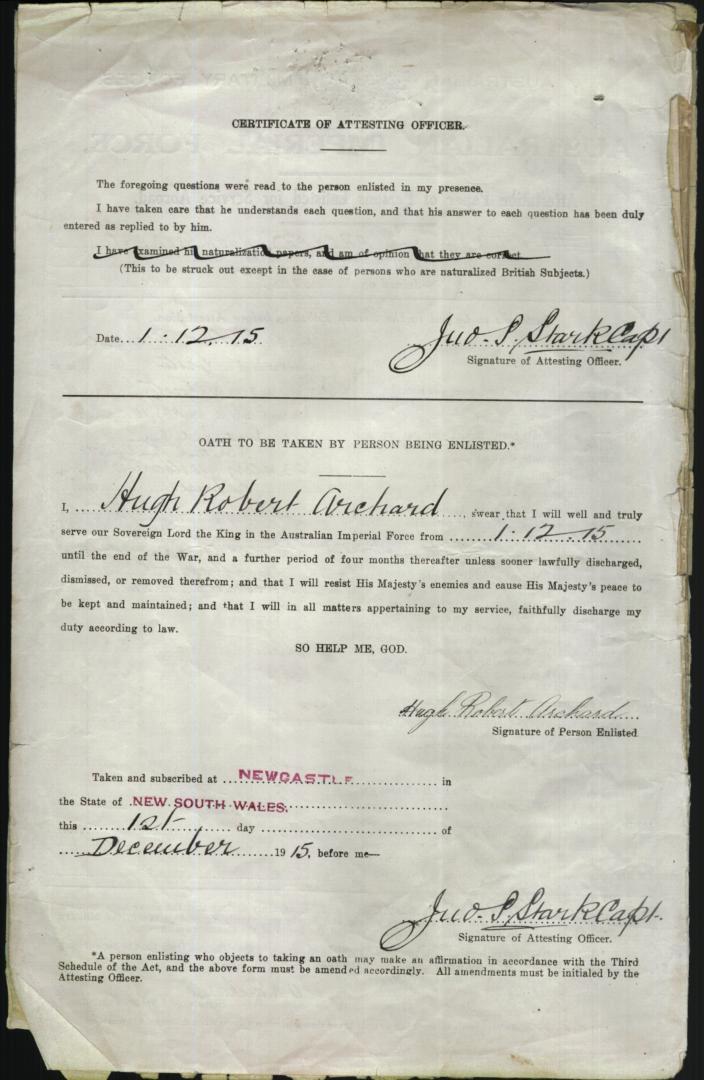 CERTIFICATE OF ATTESTING OFFICER.
The foregoing questions were read to the person enlisted in my presence.
I have taken care that he understands each question, and that his answer to each question has been duly
entered as replied to by him.
I have examined his naturalization papers, and am of opinion that they are correct.
(This to be struck out except in the case of persons who are naturalized British Subjects.)
Date... 1.12.15
Jno. S. Stark Capt
Signature of Attesting Officer.
OATH TO BE TAKEN BY PERSON BEING ENLISTED.*
I, .... Hugh Robert Archard ...., swear that I will well and truly
serve our Sovereign Lord the King in the Australian Imperial Force from ........ 1.12.15 ........
until the end of the War, and a further period of four months thereafter unless sooner lawfully discharged,
dismissed, or removed therefrom; and that I will resist His Majesty's enemies and cause His Majesty's peace to
be kept and maintained; and that I will in all matters appertaining to my service, faithfully discharge my
duty according to law.
SO HELP ME, GOD.
Hugh Robert Archard
Signature of Person Enlisted
Taken and subscribed at ... NEWCASTLE ... in
the State of NEW SOUTH WALES.
this ........ 1st ........ day ........ of
...... December ...... 1915, before me—
Jno. S. Stark Capt.
Signature of Attesting Officer.
*A person enlisting who objects to taking an oath may make an affirmation in accordance with the Third
Schedule of the Act, and the above form must be amended accordingly. All amendments must be initialed by the
Attesting Officer.